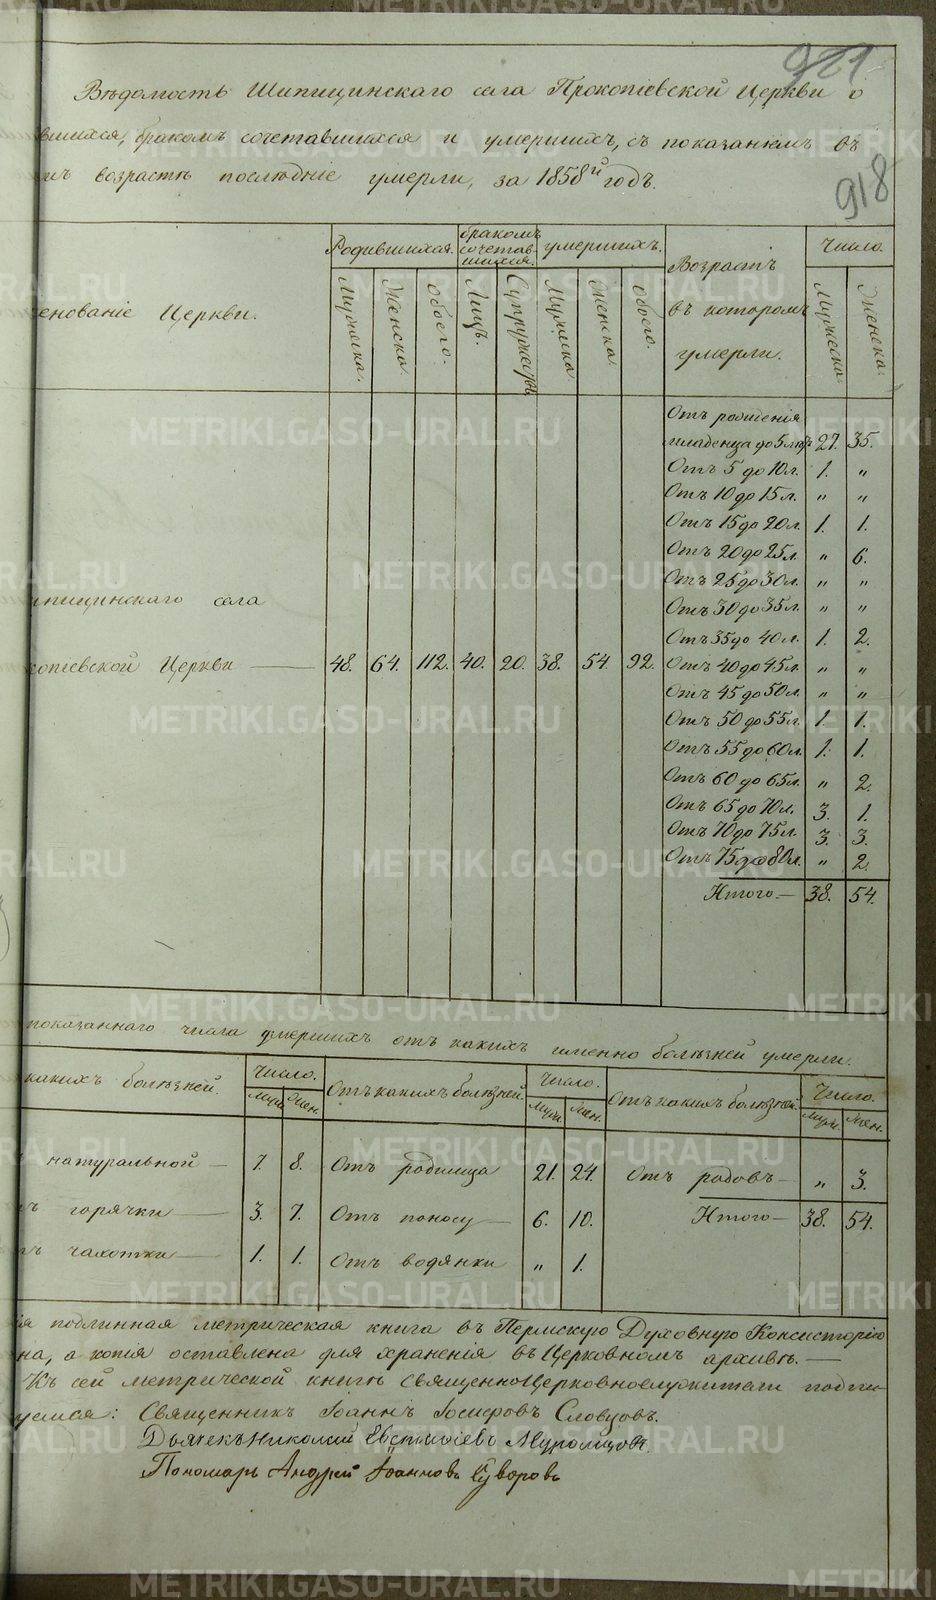 921
918
Вѣдомость Шипицинскаго села Прокопіевской Церкви о
вшихся, бракомъ сочетавшихся и умершихъ, съ показаніемъ въ
мъ возрастѣ послѣдніе умерли, за 1858й годъ.
енованіе Церкви.
Родившихся. бракомъ сочетав-шихся. умершихъ. Возрастъ въ которомъ умерли. Число.
Мужеска. Женска. Обоего. Лицъ. Супружествъ Мужеска Женска. Обоего. Мужеска Женска.
Отъ рожденія
младенца до 5 лѣтъ 27. 35.
Отъ 5 до 10 л. 1. „
Отъ 10 до 15 л. „ „
Отъ 15 до 20 л. 1. 1.
Отъ 20 до 25 л. „ 6.
Отъ 25 до 30 л. „ „
ипицинскаго села
Отъ 30 до 35 л. „ „
Отъ 35 до 40 л. 1. 2.
копіевской Церкви — 48. 64. 112. 40. 20. 38. 54. 92. Отъ 40 до 45 л. „ „
Отъ 45 до 50 л. „ „
Отъ 50 до 55 л. 1. 1.
Отъ 55 до 60 л. 1. 1.
Отъ 60 до 65 л. „ 2.
Отъ 65 до 70 л. 3. 1.
Отъ 70 до 75 л. 3. 3.
Отъ 75 до 80 л. „ 2.
Итого — 38. 54.
показаннаго числа умершихъ отъ какихъ именно болѣзней умерли.
какихъ болѣзней. Число. Отъ какихъ болѣзней. Число. Отъ какихъ болѣзней. Число.
Муж. Жен. Муж. Жен. Муж. Жен.
натуральной — 7. 8. Отъ родимца 21. 24. Отъ родовъ — „ 3.
ъ горячки — 3. 7. Отъ поносу — 6. 10. Итого — 38. 54.
тъ чахотки — 1. 1. Отъ водянки „ 1.
ія подлинная метрическая книга въ Пермскую Духовную Консисторію
на, а копія оставлена для храненія въ Церковномъ архивѣ. —
Къ сей метрической книгѣ Священноцерковнослужители подпи-
уемся: Священникъ Іоаннъ Іосифовъ Словцовъ.
Дьячекъ Николай Евстафіевъ Муромцовъ.
Пономарь Андрей Іоанновъ Суворовъ
METRIKI.GASO-URAL.RU